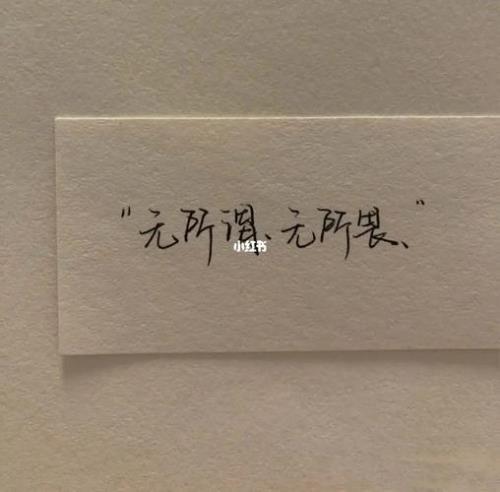 "无所谓、无所畏、"
小红书